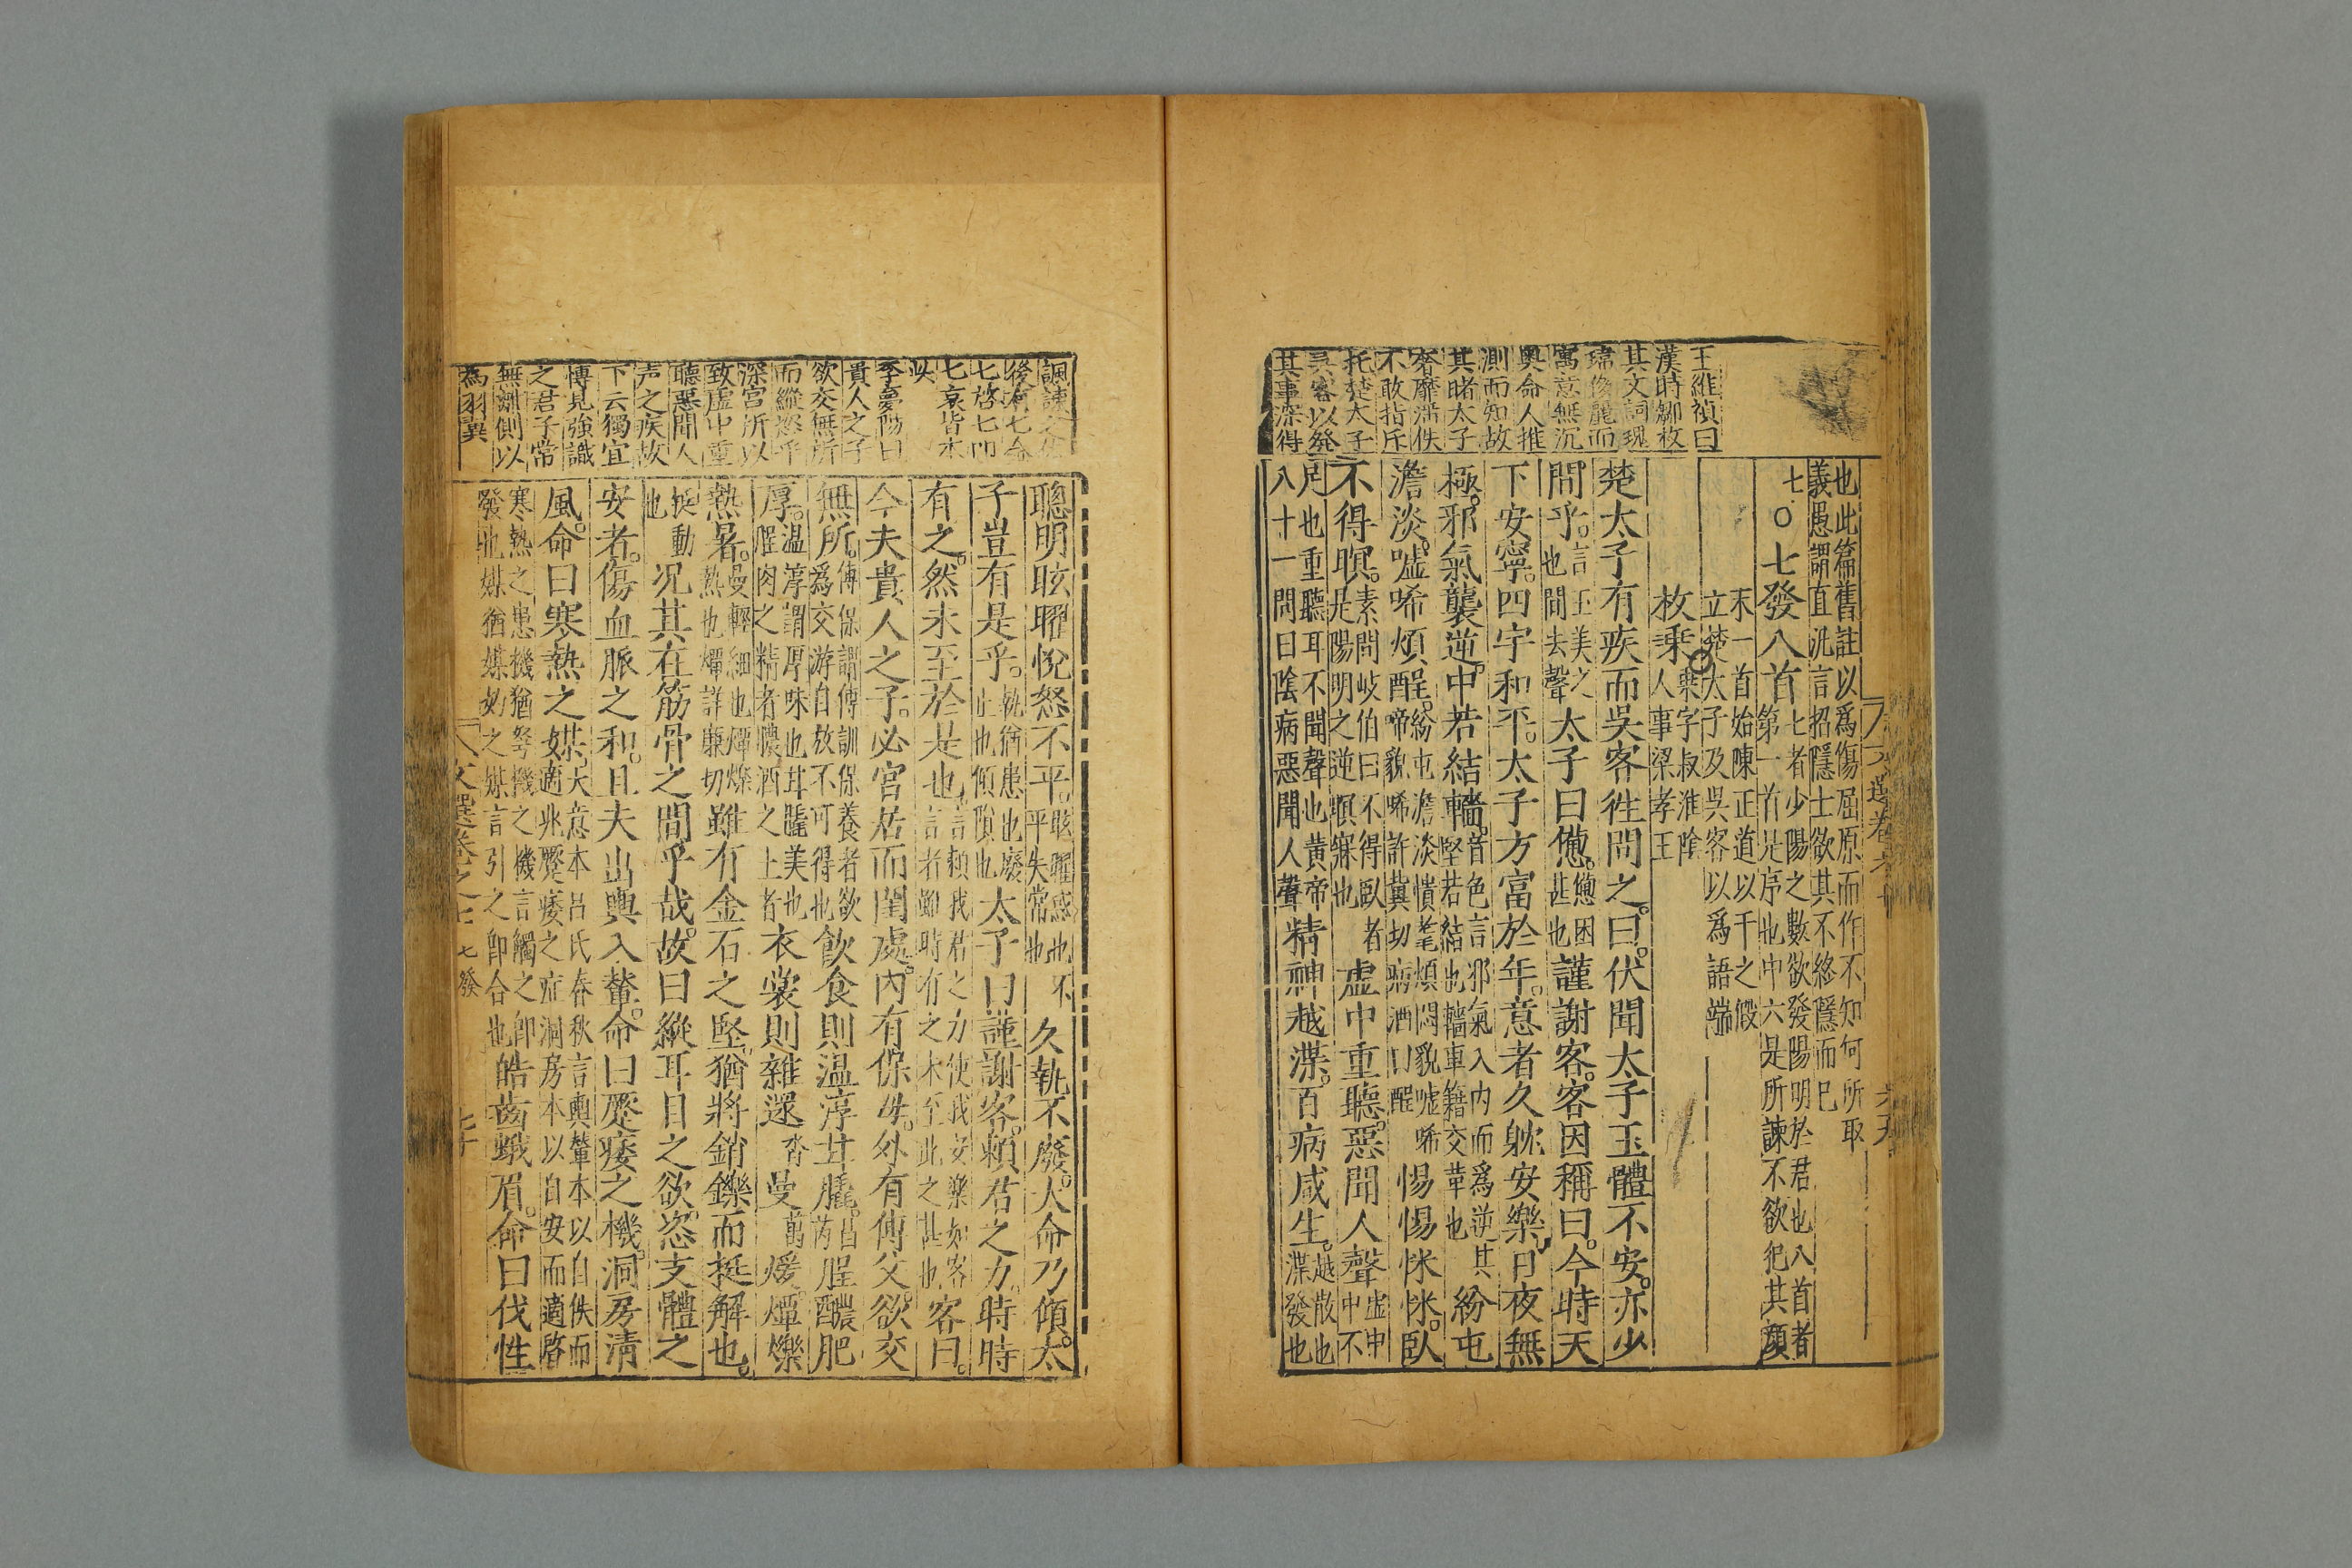 王維禎曰
漢時鄒枚
其文詞瑰
瑋俊麗而
寓意無沉
奧命人推
測而知故
其睹太子
奢靡滿佚
不敢指斥
托楚太子
吳客以發
其事深得
也此篇舊註以為傷屈原而作不知何所取
義愚謂直沈言招隱士欲其不終隱而已
七
○七發八首
七者少陽之數欲發陽明於君也八首者
第一首是序也中六是所諫不欲犯其顏
末一首始陳正道以干之假
立楚太子及吳客以為語端
枚乘
乘字叔淮陰
人事梁孝王
楚太子有疾而吳客徃問之曰伏聞太子玉體不安亦少
間乎
言玉美之
也間去聲
太子曰憊
憊困
甚也
謹謝客客因稱曰今時天
下安寧四宇和平太子方富於年意者久躭安樂日夜無
極邪氣襲逆中若結轖
音色言邪氣入内而為逆其
堅若結也轖車籍交革也
紛屯
澹淡噓唏煩酲
紛屯澹淡憒耄煩悶貌噓唏
啼貌唏許冀切病酒曰酲
惕惕怵怵卧
不得瞑
素問岐伯曰不得臥者
是陽明之逆瞑寐也
虛中重聽惡聞人聲
虛中
中不
足也重聽耳不聞聲也黄帝
八十一問曰陰病惡聞人聲
精神越渫百病咸生
越散也
渫發也
諷諫之
後有七命
七啓七
七哀皆本
此
李夢陽曰
貴人之子
欲交無所
而縱恣乎
深宮所以
致虛中重
聽惡聞人
声之疾故
下云獨宜
博見強識
之君子常
無離側以
為羽翼
聰明眩曜悅怒不平
眩曜惑也
平失常也
不
久執不廢大命乃傾太
子豈有是乎
執猶患也廢
止也傾隕也
太子曰謹謝客頼君之力時時
有之然未至於是也
言頼我君之力使我安樂如客
言者雖時有之未至此之甚也
客曰
今夫貴人之子必宮居而閨處内有保母外有傅父欲交
無所
傅保謂傅訓保養者欲
為交游自放不可得也
飲食則温淳甘膬
昌
芮
腥醲肥
厚
温淳謂厚味也甘膬美也
腥肉之精者醲酒之上者
衣裳則雜遝
沓
曼
萬
煖燂爍
熱暑
曼輕細也燂爍
熱也燂詳廉切
雖有金石之堅猶將銷鑠而挺解也
挺動
也
况其在筋骨之間乎哉故曰縱耳目之欲恣支體之
安者傷血脈之和且夫出輿入輦命曰蹷痿之機洞房清
風命曰寒熱之媒
夫意本吕氏春秋言輿輦本以自佚而
適兆蹷痿之症洞房本以自安而適啓
寒熱之患機猶弩機之機言觸之卽
發也媒猶媒妁之媒言引之卽合也
皓齒蛾眉命曰伐性
文選卷之七
七發
七十